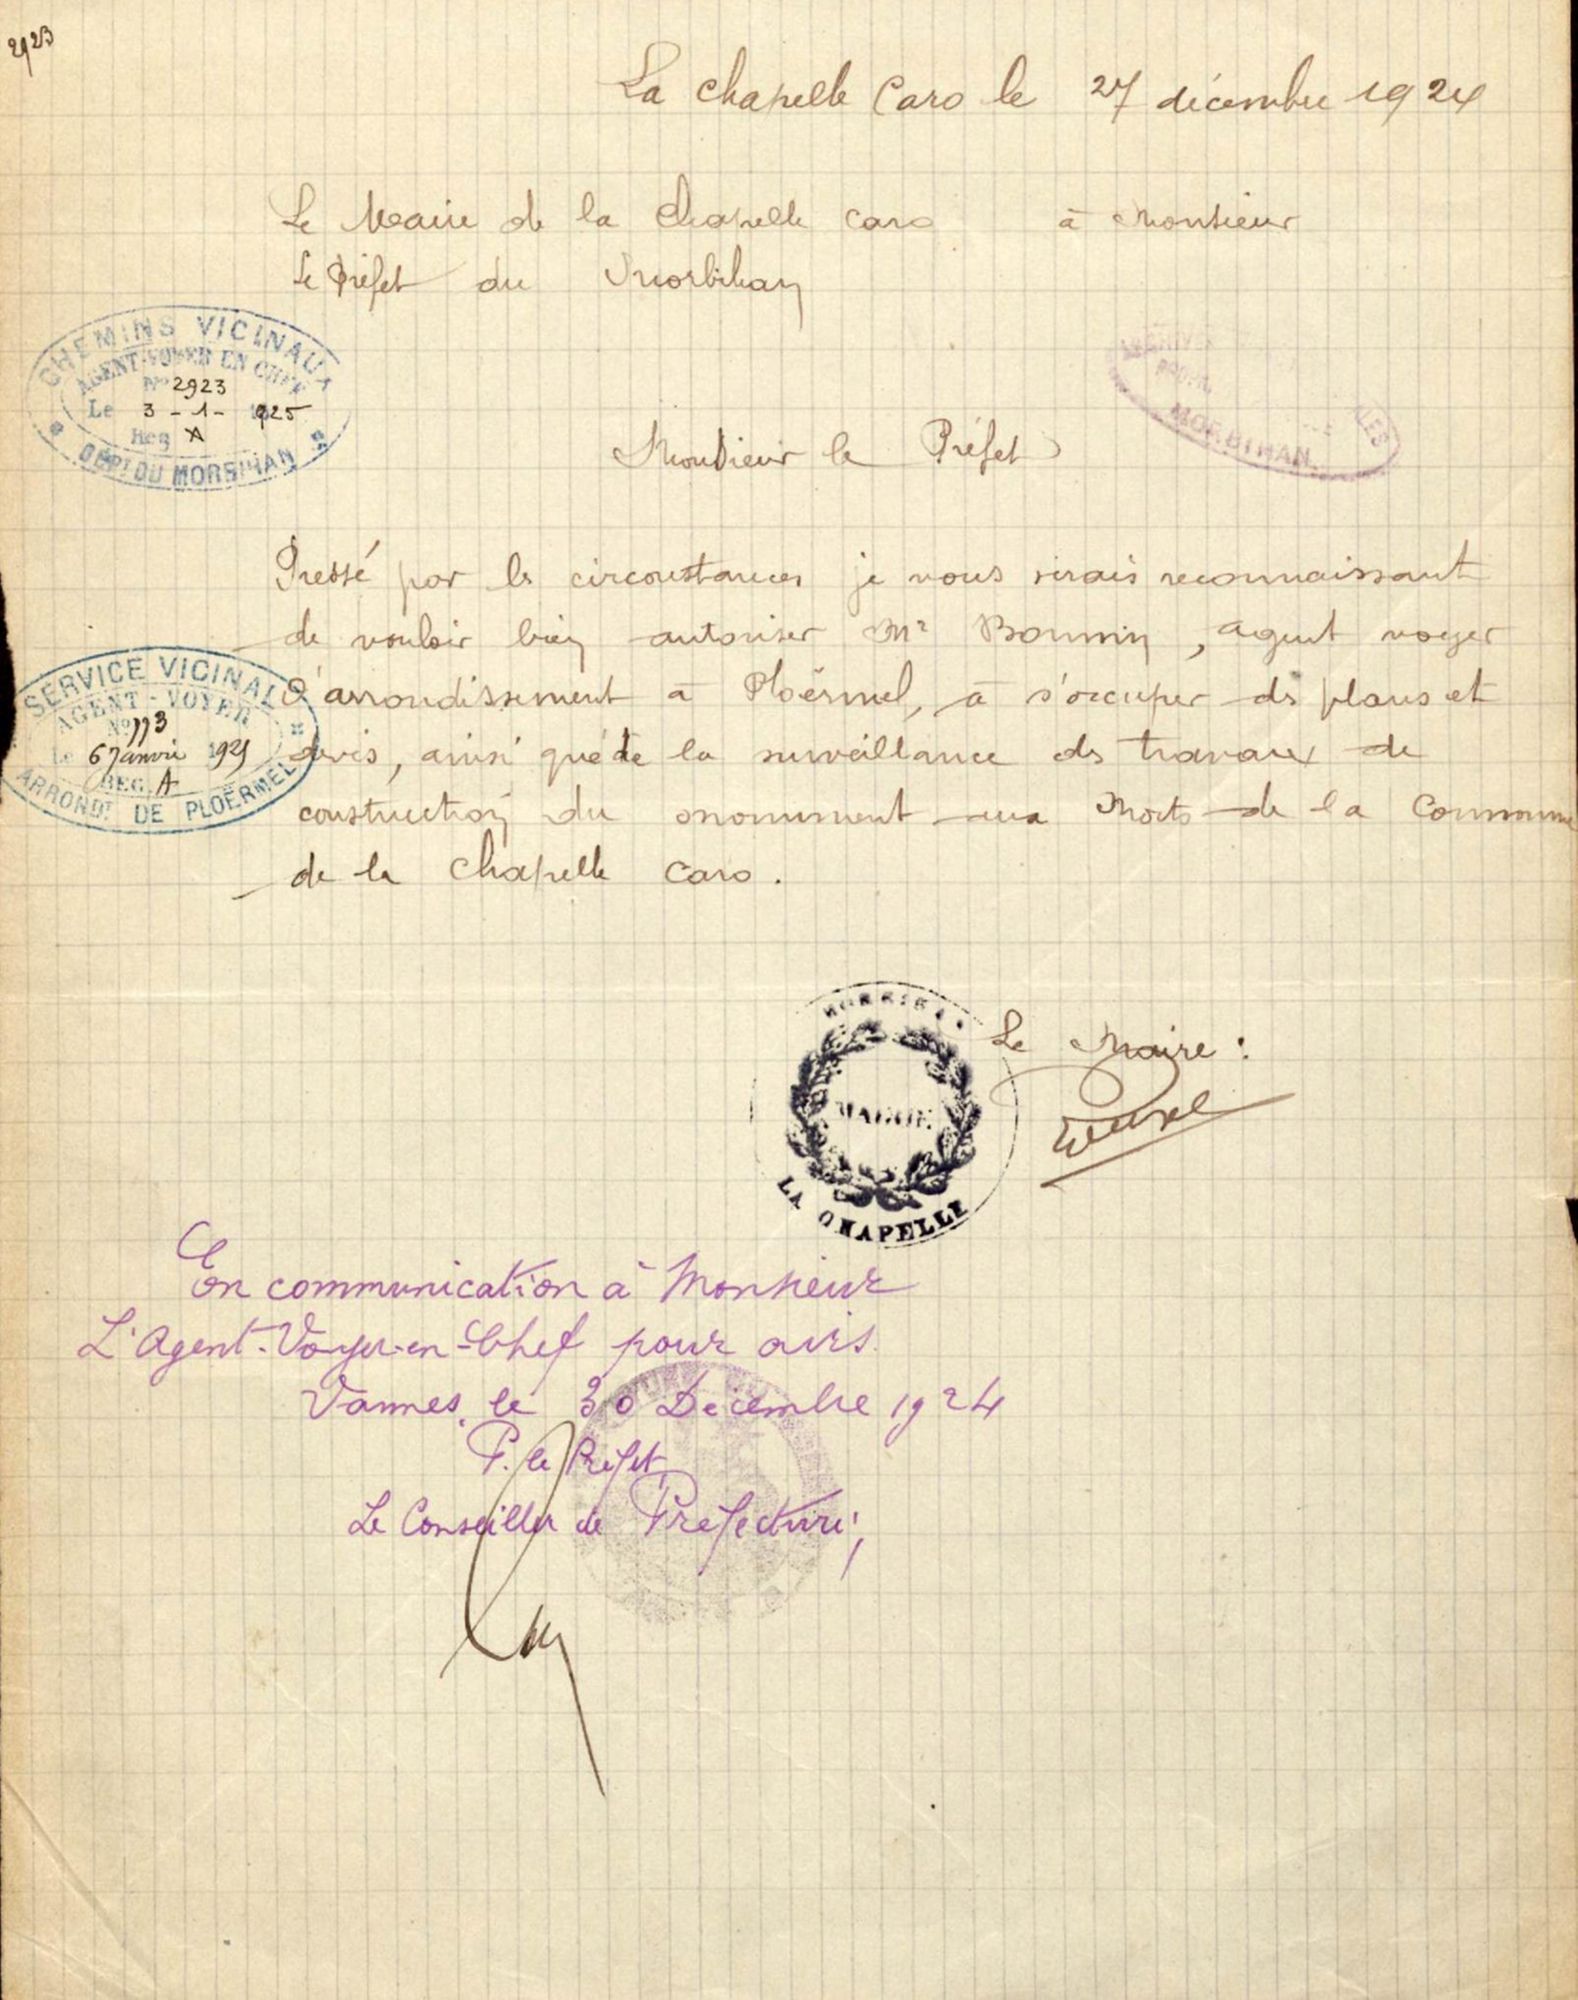 2923
La Chapelle Caro le 27 décembre 1924
Le Maire de la Chapelle Caro à Monsieur
Le Préfet du Morbihan
CHEMINS VICINAUX
AGENT-VOYER EN CHEF
N° 2923
Le 3 - 1 - 1925
Reg A
DÉPt DU MORBIHAN
MORBIHAN
Monsieur le Préfet
Pressé par les circonstances je vous serais reconnaissant
de vouloir bien autoriser Mr , agent voyer
d'arrondissement à Ploërmel, à s'occuper des plans et
devis, ainsi que de la surveillance des travaux de
construction du monument aux Morts de la Commune
de la Chapelle Caro.
SERVICE VICINAL
AGENT-VOYER
N° 113
Le 6 Janvier 1925
REG. A
ARRONDt DE PLOËRMEL
Le Maire :
MAIRIE
LA CHAPELLE
En communication à Monsieur
L'Agent-Voyer-en-Chef pour avis.
Vannes, le 30 Décembre 1924
P. le Préfet,
Le Conseiller de Préfecture,